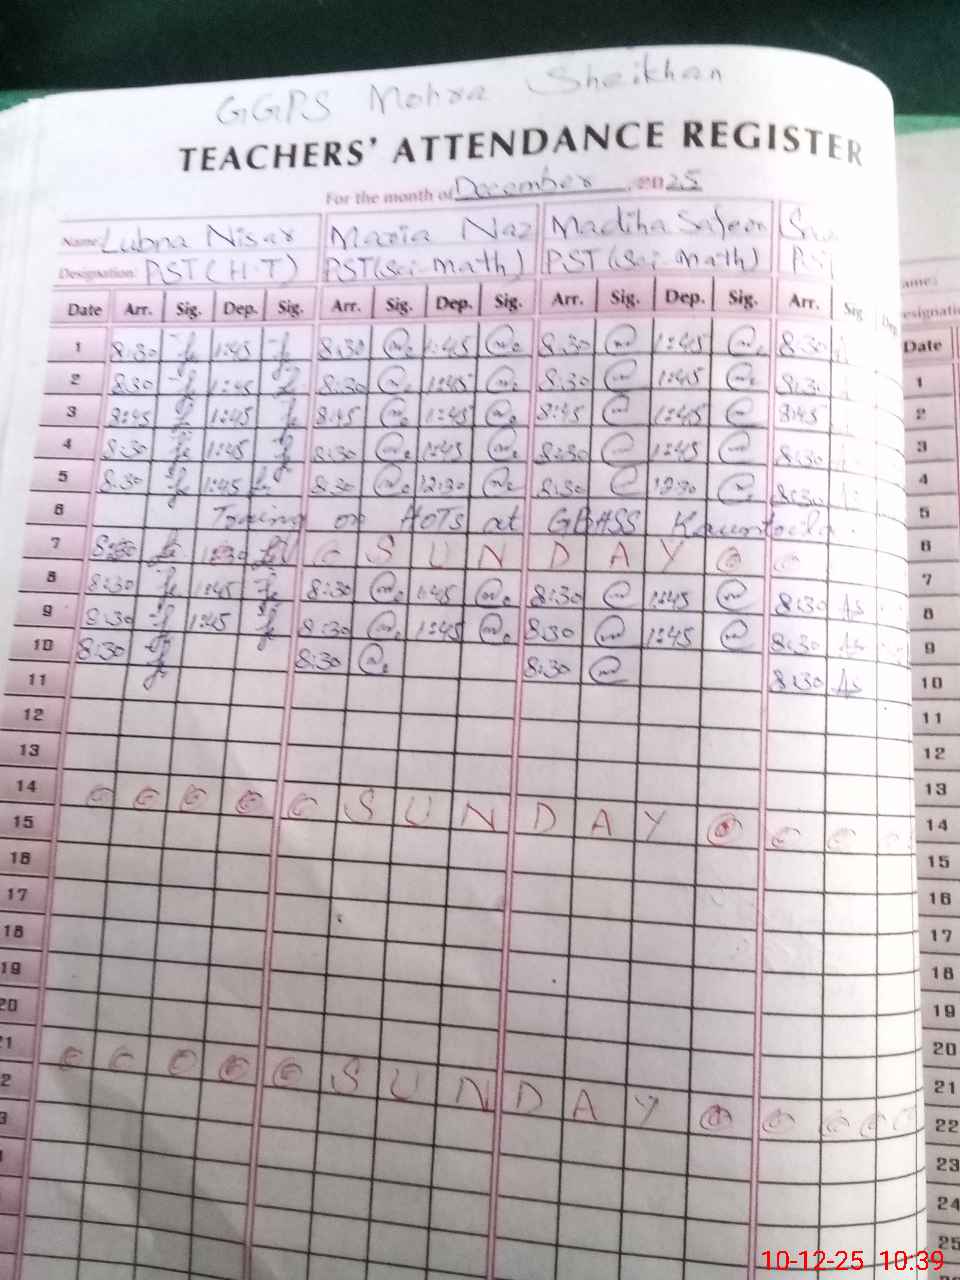 GGPS Mohra Sheikhan
TEACHERS' ATTENDANCE REGISTER
For the month of December 2025
Name: Lubna Nisar Maria Naz Madiha Safeer
Designation: PST (H.T) PST (Sci-math) PST (Sci-math) PST
Date Arr. Sig. Dep. Sig. Arr. Sig. Dep. Sig. Arr. Sig. Dep. Sig. Arr. Sig Dep
1 8:30 1:45 8:30 1:45 8:30 1:45 8:30
2 8:30 1:45 8:30 1:45 8:30 1:45 8:30
3 8:45 1:45 8:45 1:45 8:45 1:45 8:45
4 8:30 1:45 8:30 1:45 8:30 1:45 8:30
5 8:30 1:45 8:30 12:30 8:30 12:30 8:30
6 Training on HOTs at GBHSS
7 8:30 S U N D A Y
8 8:30 1:45 8:30 1:45 8:30 1:45 8:30 As
9 8:30 1:45 8:30 1:45 8:30 1:45 8:30 As
10 8:30 8:30 8:30 8:30 As
11
12
13
14 S U N D A Y
15
16
17
18
19
20
21 S U N D A Y
ame:
esignatio
Date
1
2
3
4
5
6
7
8
9
10
11
12
13
14
15
16
17
18
19
20
21
22
23
24
25
10-12-25 10:39